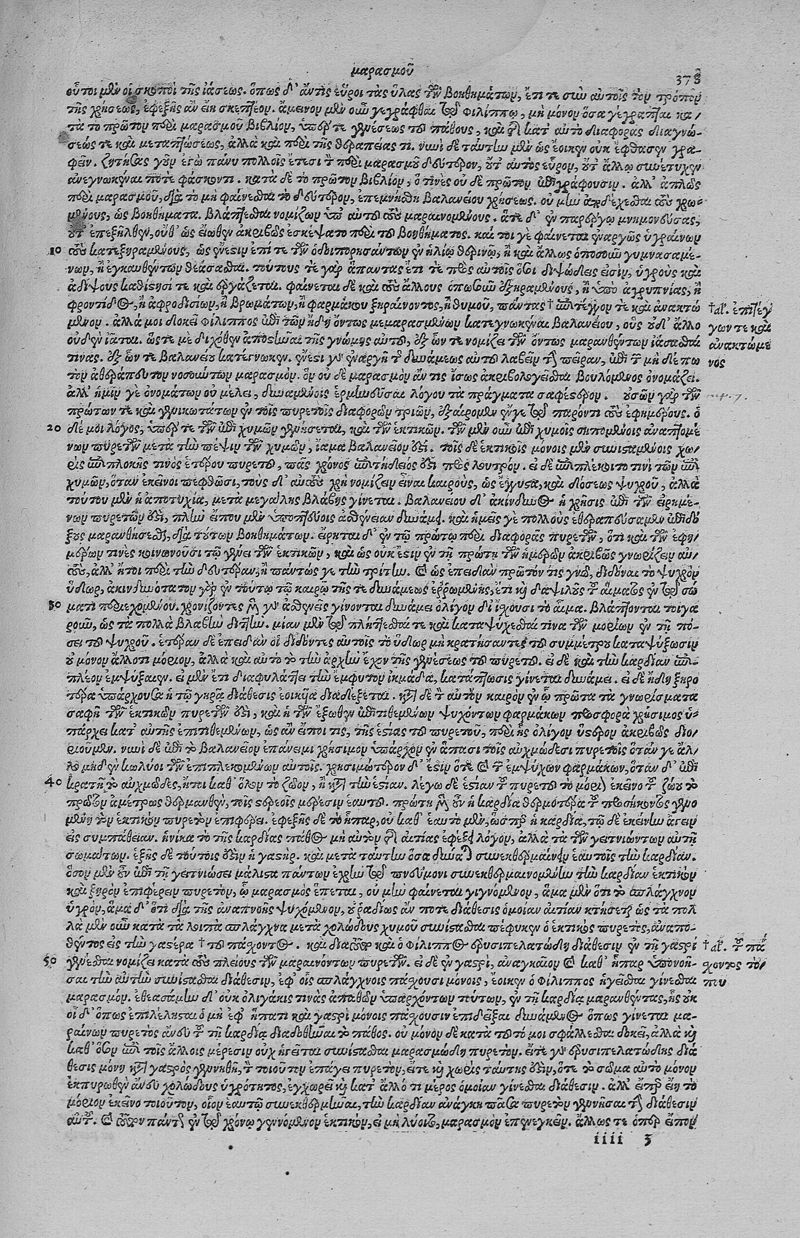 μαρασμοῦ 378
οὗτοι μὲν οἱ σκοποὶ τῆς ἰάσεως. ὅπως δ' ἄν τις εὕροι τὰς ὕλας τῶν βοηθημάτων, ἔτι τε σὺν αὐτοῖς τὸν τρόπον
τῆς χρήσεως, ἐφεξῆς ἂν εἴη σκεπτέον. ἄμεινον μὲν οὖν γεγράφθαι τῷ φιλίππῳ, μὴ μόνον ὅσα γέγραπται κα/
τὰ τὸ πρῶτον περὶ μαρασμοῦ βιβλίον, ὑπέρ τε γενέσεως τοῦ πάθους, καὶ τῆς κατ' αὐτὸ διαφορᾶς διαγνώ/
σεώς τε καὶ μεταπτώσεως, ἀλλὰ καὶ περὶ τῆς θεραπείας τι. νυνὶ δὲ ταύτην μὲν ὡς ἔοικεν οὐκ ἔφθασεν γρα/
φεῖν. ζητήσας γοῦν ἐγὼ πάνυ πολλοῖς ἔτεσι τὸ περὶ μαρασμοῦ δεύτερον, οὔτ' αὐτὸς εὗρον, οὔτ' ἄλλῳ συνέτυχον
ἀνεγνωκέναι ποτὲ φάσκοντι. κατὰ δὲ τὸ πρῶτον βιβλίον, ὅ τινες οὐδὲ πρῶτον ἐπιγράφουσιν. ἀλλ' ἁπλῶς
περὶ μαρασμοῦ, διὰ τὸ μὴ φαίνεσθαι τὸ δεύτερον, ἐπεμνήσθη βαλανείου χρήσεως. οὐ μὴν ἀποδέχεταί τοὺς χρω/
μένους, ὡς βοηθήματι. βλάπτεσθαι νομίζων ὑπ' αὐτοῦ τοὺς μαραινομένους. ἅτε δ' ἐν παρέργῳ μνημονεύσας,
οὔτ' ἐπεξῆλθεν, οὐθ' ὡς εἴωθεν ἀκριβῶς ἐσκέψατο περὶ τοῦ βοηθήματος. καί τοι γε φαίνεται ἐναργῶς ὑγραῖνον
10 τοὺς κατεξηραμένους, ὡς ἔνεστιν ἐπί τε τῶν ὁδοιπορησάντων ἐν ἡλίῳ θερινῷ, ἢ καὶ ἄλλως ὁπωσοῦν γυμνασαμέ/
νων, ἢ ἐγκαυθέντων θεάσασθαι. τούτους τε γὰρ ἅπαντας ἔτι τε πρὸς αὐτοῖς ὅσοι διψώδεις εἰσὶν, ὑγροὺς καὶ
ἀδίψους καθίστησί τε καὶ ἐργάζεται. φαίνεται δὲ καὶ τοὺς ἄλλους ὁπωσοῦν ἐξηραμένους, ἢ ὑπὸ ἀγρυπνίας, ἢ
φροντίδος, ἢ ἀφροδισίων, ἢ βρωμάτων, ἢ φαρμάκου ξηραίνοντος, ἢ θυμοῦ, πάντας † ἐπιτέγγον τε καὶ ἀνακτώ †αλ. ἐπιτέγ
μενον. ἀλλά μοι δοκεῖ φίλιππος ἐπὶ τῶν ἤδη ὄντως μεμαρασμένων κατεγνωκέναι βαλανείου, οὓς οὐδ' ἄλλο γων τε καὶ
οὐδὲν ἰᾶται. ὥστε με διχόθεν ἀποσπᾶσαι τῆς γνώμης αὐτοῦ, ἐξ ὧν τε νομίζει τῶν ὄντως μαρανθέντων ἰάσασθαί ἀνακτώμε
τινας. ἐξ ὧν τε βαλανεῖον κατέγνωκεν. ἔνεστι γὰρ ἐναργῆ τῆς δυνάμεως αὐτοῦ λαβεῖν τὴν πεῖραν, ἐπὶ τῶν μηδέπω νος
τὸν ἀθεράπευτον νοσούντων μαρασμόν. ὃν οὐδὲ μαρασμὸν ἄν τις ἴσως ἀκριβολογεῖσθαι βουλόμενος ὀνομάζει.
ἀλλ' ἡμῖν γε ὀνομάτων οὐ μέλει, δυναμένοις ἑρμηνεῦσαι λόγου τὰ πράγματα σαφέστερον. οὐσῶν γὰρ τῶν
πρώτων τε καὶ γενικωτάτων ἐν τοῖς πυρετοῖς διαφορῶν τριῶν, ἐξαιρομεν ἔν γε τῷ παρόντι τοὺς ἐφημέρους. ὁ
20 δέ μοι λόγος, ὑπέρ τε τῶν ἐπὶ χυμῶν γενήσεται, καὶ τῶν ἑκτικῶν. τῶν μὲν οὖν ἐπὶ χυμοῖς σηπομένοις ἀναπτομέ
νων πυρετῶν μετὰ τὴν πέψιν τῶν χυμῶν, ἴαμα βαλανεῖόν ἐστι. τοῖς δὲ ἑκτικοῖς μόνοις μὲν συνισταμένοις χω/
ρὶς ἐπιπλοκῆς τινὸς ἑτέρου πυρετοῦ, πᾶς χρόνος ἐπιτήδειός ἐστι πρὸς λουτρόν. εἰ δὲ ἐπιπλέκοιτό τινι τῶν ἐπὶ
χυμῶν, ὅταν ἐκεῖνοι πεφθῶσι, τοὺς δ' αὐτοὺς χρὴ νομίζειν εἶναι καιροὺς, ὡς ἔγνυσται, καὶ δόσεως ψυχροῦ, ἀλλὰ
τούτου μὲν ἡ ἀποτυχία, μετὰ μεγάλης βλάβης γίνεται. βαλανείου δ' ἀκίνδυνος ἡ χρῆσις ἐπὶ τῶν εἰρημέ/
νων πυρετῶν ἐστι, πλὴν εἴ που μὲν ὑποπτεύοις ἀσθένειαν δυνάμεως. καὶ ἡμεῖς γε πολλοὺς ἐθεραπεύσαμεν ἐπιδεί
ξως μαρανθῆναι, διὰ τούτων βοηθημάτων. εἴρηται δ' ἐν τῷ πρώτῳ περὶ διαφορᾶς πυρετῶν, ὅτι καὶ τῶν ἐφη/
μέρων τινὲς κοινωνοῦσι τῷ γένει τῶν ἑκτικῶν, καὶ ὡς οὐκ ἔστιν ἐν τῇ πρώτῃ τῶν ἡμερῶν ἀκριβῶς γνωρίζειν αὐ/
τοὺς, ἀλλ' ἤτοι περὶ τὴν δευτέραν, ἢ πάντως γε τὴν τρίτην. καὶ ὡς ἐπειδὰν πρῶτόν τις γνῷ, διδόναι τὸ ψυχρὸν
ὕδωρ, ἀκινδυνότατον γὰρ ἐν τούτῳ τῷ καιρῷ τῆς τε δυνάμεως ἐρρωμένης, ἔτι καὶ δαψιλοῦς τοῦ αἵματος ἐν τῷ σώ
30 ματι περιεχομένου. χρονίζοντες μὲν γὰρ ἀσθενεῖς γίνονται δυνάμει ὀλίγον δ' ἴσχουσι τὸ αἷμα. βλάπτονται τοιγα
ροῦν, ὡς τὰ πολλὰ βλάβην διττήν. μίαν μὲν τῷ πλήττεσθαί τε καὶ καταψύχεσθαί τινα τῶν μορίων ἐν τῇ πό/
σει τοῦ ψυχροῦ. ἑτέραν δὲ ἐπειδὰν οἱ διδόντες αὐτοῖς τὸ ὕδωρ μὴ κρατήσαντες τοῦ συμμέτρου καταψύξωσιν
οὐ μόνον ἄλλο τι μόριον, ἀλλὰ καὶ αὐτὸ τὸ τὴν ἀρχὴν ἔχον τῆς γενέσεως τοῦ πυρετοῦ. εἰ δὲ καὶ τὴν καρδίαν ἐπι/
πλέον ἐμψύξαιεν. εἰ μὲν ἔτι διαφυλάττει τὴν ἔμφυτον ἰκμάδα, κατάπτωσις γίνεται δυνάμει. εἰ δὲ ἤδη ξηρο
τέρα ὑπάρχουσα ἡ τῷ γήρᾳ διάθεσις ἐοικυῖα διαδέξεται. κατὰ δὲ τὸν αὐτὸν καιρὸν ἐν ᾧ πρῶτα τὰ γνωρίσματα
σαφῆ τῶν ἑκτικῶν πυρετῶν ἐστι, καὶ ἡ τῶν ἔξωθεν ἐπιτιθεμένων ψυχόντων φαρμάκων προσφορὰ χρήσιμος ὑ/
πάρχει κατ' αὐτῆς ἐπιτιθεμένων, ὡς ἂν εἴποι τις, τῆς ἑστίας τοῦ πυρετοῦ, περὶ ἧς ὀλίγον ὕστερον ἀκριβῶς διο/
ριοῦμεν. νυνὶ δὲ ἐπὶ τὸ βαλανεῖον ἐπάνειμι χρήσιμον ὑπάρχον ἐν ἅπασι τοῖς αὐχμώδεσι πυρετοῖς ὅταν γε ἄλ/
λο μηδὲν κωλύοι τῶν ἐπιπλεκομένων αὐτοῖς. χρησιμώτερον δ' ἔστιν ὅτε καὶ τῶν ἐμψυχόντων φαρμάκων, ὅταν δ' ἐπι
40 κρατῇ τὸ αὐχμῶδες, ἤτοι καθ' ὅλον τὸ ζῶον, ἢ κατὰ τὴν ἑστίαν. λέγω δὲ ἑστίαν τοῦ πυρετοῦ τὸ μόριον ἐκεῖνο τοῦ ζώου τὸ
πρῶτον ἀμέτρως θερμανθὲν, τοῖς στερεοῖς μέρεσιν ἑαυτοῦ. πρώτη μὲν οὖν ἡ καρδία θερμοτέρα τοῦ προσήκοντος γενο
μένη τὸν ἑκτικὸν πυρετὸν ἐπιφέρει. ἐφεξῆς δὲ τὸ ἧπαρ, οὐ καθ' ἑαυτὸ μὲν, ὥσπερ ἡ καρδία, τῷ δὲ ἐκείνην ἄγειν
εἰς συμπάθειαν. ἡνίκα τὸ τῆς καρδίας πάθος μὴ αὐτὸν τῆς αἰτίας ἐφέξει λόγον, ἀλλὰ τὰ τῶν γειτνιώντων αὐτῇ
σωμάτων. ἑξῆς δὲ τούτοις ἐστὶν ἡ γαστήρ. καὶ μετὰ ταύτην ὅσα δύναται συνεκθερμαίνειν ἑαυτοῖς τὴν καρδίαν.
ὅσον μὲν οὖν ἐπὶ τῇ γειτνιώσει μάλιστα πάντων ἐχρῆν τῷ πνεύμονι συνεκθερμαινομένην τὴν καρδίαν ἑκτικὸν
καὶ ξηρὸν ἐπιφέρειν πυρετὸν, ᾧ μαρασμὸς ἕπεται, οὐ μὴν φαίνεται γιγνόμενον, ἅμα μὲν ὅτι τὸ σπλάγχνον
ὑγρὸν, ἅμα δ' ὅτι διὰ τῆς ἀναπνοῆς ψυχόμενον, οὐ ῥᾳδίως ἄν ποτε διάθεσιν ὁμοίαν αἰτίαν κτήσεται ὡς τὰ πολ
λὰ μὲν οὖν κατὰ τὰ λοιπὰ σπλάγχνα μετὰ χολώδους χυμοῦ συνίστασθαι πέφυκεν ὁ ἑκτικὸς πυρετὸς, ἀναπο/
θέντος εἰς τὴν γαστέρα † τοῦ πάχοντος. καὶ διὰ τοῦτο καὶ ὁ φίλιππος ἐρυσιπελατώδη διάθεσιν ἐν τῇ γαστρὶ †αλ. τοῦ πά
50 γίνεσθαι νομίζει κατὰ τοὺς πλείους τῶν μαραινόντων πυρετῶν. εἰ δὲ ἐν γαστρὶ, ἀναγκαῖον καὶ καθ' ἧπαρ ὑπονοῆ/ χοντος τό/
σαι τὴν αὐτὴν συνίστασθαι διάθεσιν, ἐφ' οἷς σπλάγχνοις πάσχουσι μόνοις, ἔοικεν ὁ φίλιππος ἡγεῖσθαι γίνεσθαι που
μαρασμόν. ἐθεασάμην δ' οὐκ ὀλιγάκις τινὰς ἀπαθῶν ὑπαρχόντων τούτων, ἐν τῇ καρδίᾳ μαρανθέντας, ἧς οὐκ
οἶδ' ὅπως ἐπιλέλησται ὁ μὴ ἐφ' ἥπατι καὶ γαστρὶ μόνοις πάσχουσιν ἐπιδεῖξαι δυνάμενος ὅπως γίνεται μα/
ραίνων πυρετὸς ἄνευ τοῦ τῇ καρδίᾳ διαδοθῆναι τὸ πάθος. οὐ μόνον δὲ κατὰ τοῦτό μοι σφάλλεσθαι δοκεῖ, ἀλλὰ καὶ
καθ' ὅσον ἐπὶ τοῖς ἄλλοις μέρεσιν οὐχ ἡγεῖται συνίστασθαι μαρασμώδη πυρετόν. εἴτε γὰρ ἐρυσιπελατώδης διά
θεσις μόνη κατὰ γαστρὸς γεννηθῇ, τὸν τοιοῦτον ἐπάγει πυρετὸν, εἴτε καὶ χωρὶς ταύτης ἐστὶν, ὅτε τὸ σῶμα αὐτὸ μόνον
ἐκπυρωθὲν ἄνευ χολώδους ὑγρότητος, ἐγχωρεῖ καὶ κατ' ἄλλο τι μέρος ὁμοίαν γίνεσθαι διάθεσιν. ἀλλ' εἴπερ εἴη τὸ
μόριον ἐκεῖνο τοιοῦτον, οἷον ἑαυτῷ συνεκθερμῆναι, τὴν καρδίαν ἀνάγκη πᾶσα πυρετὸν γενέσθαι τῇ διάθεσιν
αὐτοῦ. καὶ τοῦτον παντὶ ἐν τῷ χρόνῳ γινόμενον ἑκτικὸν, εἰ μὴ λύοιτο, μαρασμὸν ἐπενεγκεῖν. ἄλλως τε ὅπερ εἶπον
iiii 3